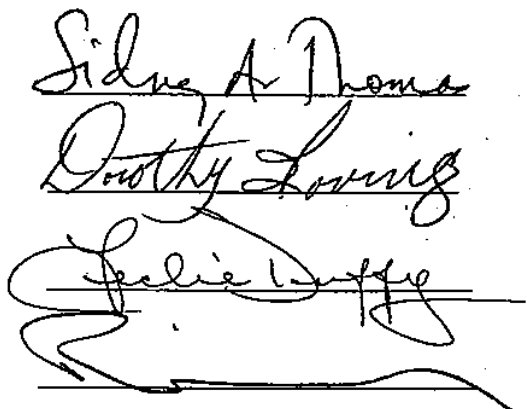 Sidney A Thomas
Dorothy Loving
Leslie Duffy